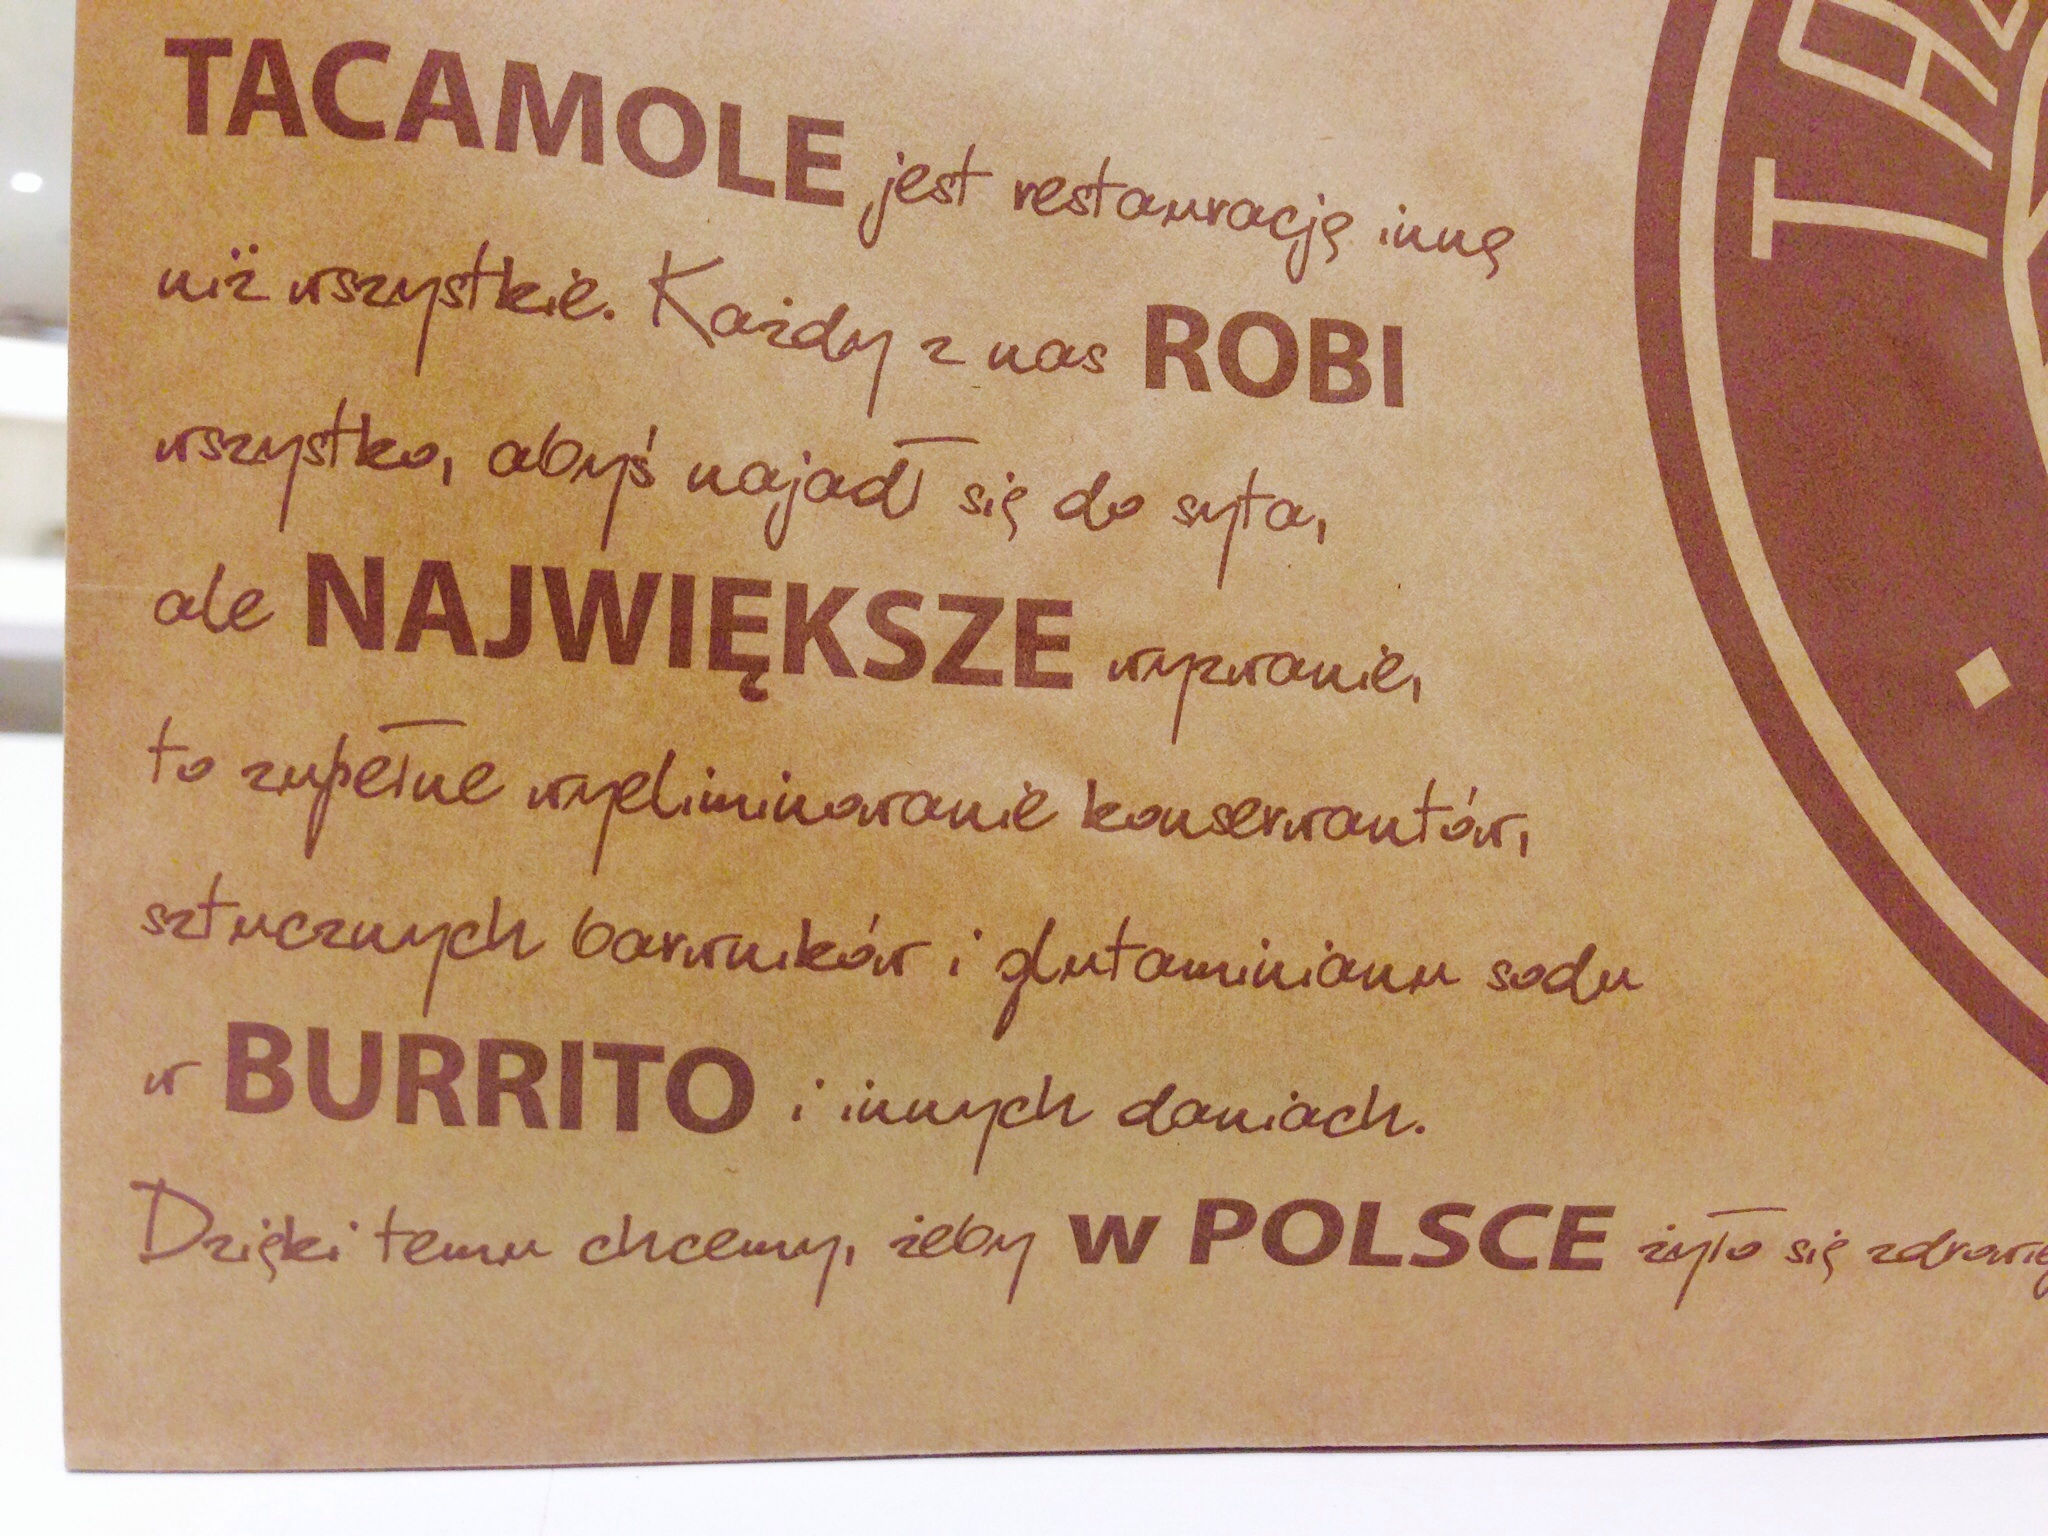 TACAMOLE jest restauracją inną
niż wszystkie. Każdy z nas ROBI
wszystko, abyś najadł się do syta,
ale NAJWIĘKSZE wyzwanie,
to zupełne wyeliminowanie konserwantów,
sztucznych barwników i glutaminianu sodu
w BURRITO i innych daniach.
Dzięki temu chcemy, żeby w POLSCE żyło się